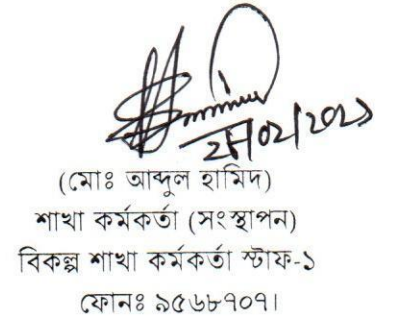 (মোঃ আব্দুল হামিদ)
শাখা কর্মকর্তা (সংস্থাপন)
বিকল্প শাখা কর্মকর্তা স্টাফ-১
ফোনঃ ৯৫৬৮৭০৭।